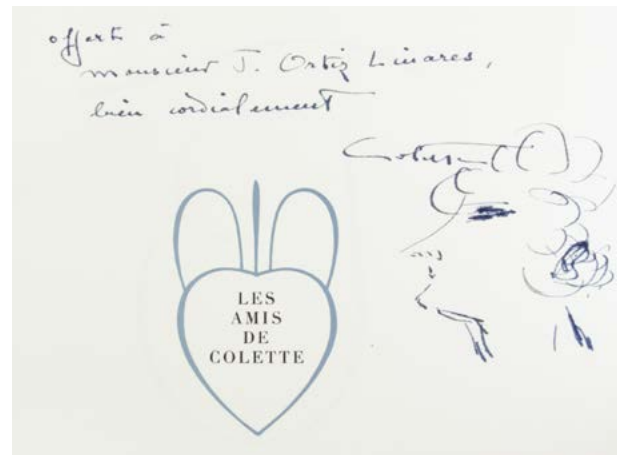 offert à
monsieur J. Ortiz Linares,
bien cordialement
Colette
LES
AMIS
DE
COLETTE